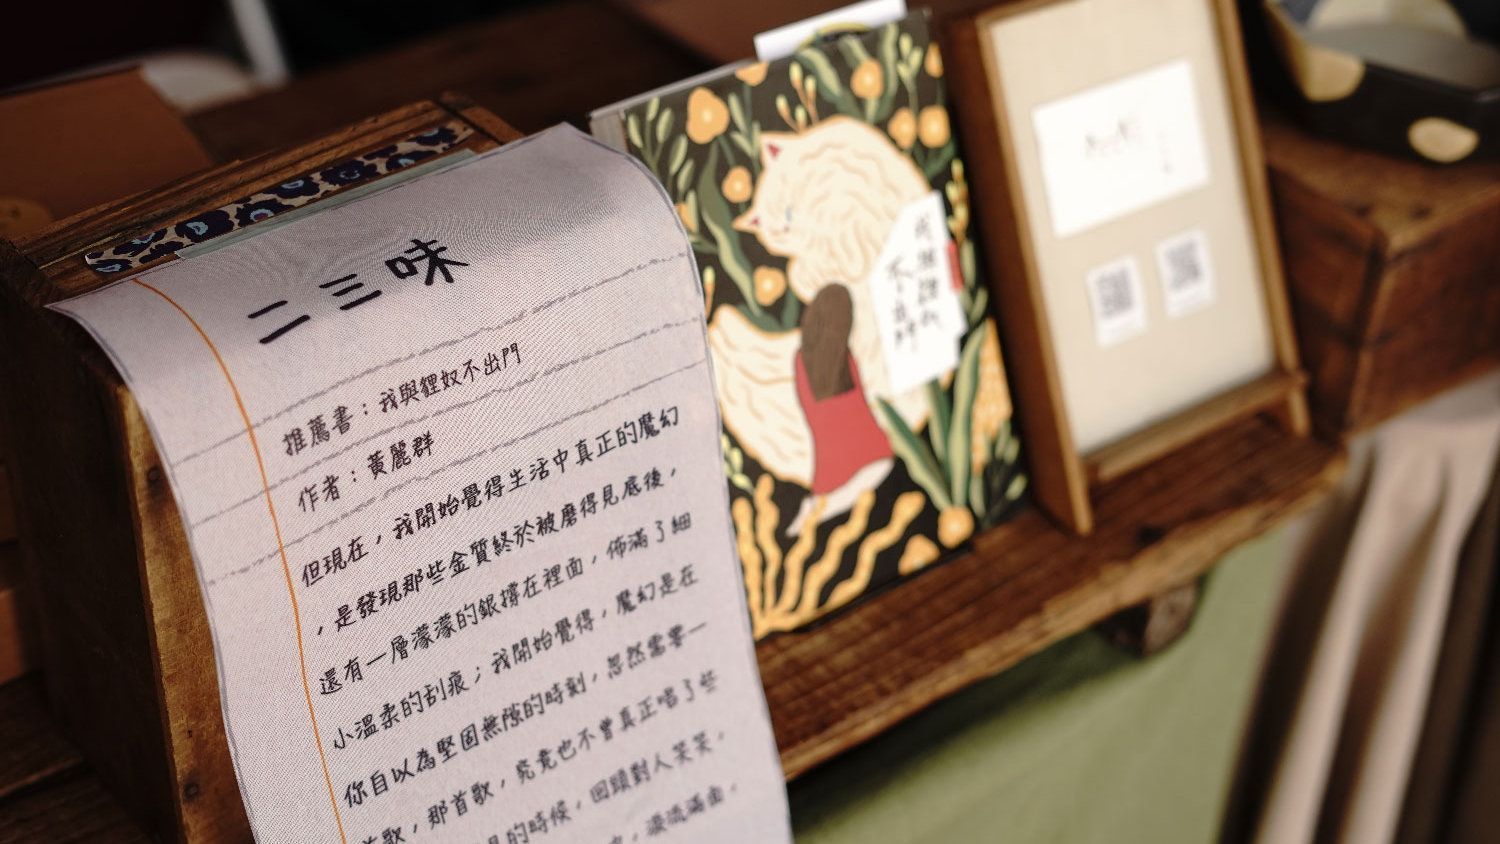 二三味
推薦書：我與貍奴不出門
作者：黃麗群
但現在，我開始覺得生活中真正的魔幻
，是發現那些金質終於被磨得見底後，
還有一層濛濛的銀撐在裡面，佈滿了細
小溫柔的刮痕；我開始覺得，魔幻是在
你自以為堅固無隙的時刻，忽然需要一
首歌，那首歌，究竟也不曾真正唱了些
的時候，回頭對人笑笑，
淚流滿面，
我與貍奴
不出門